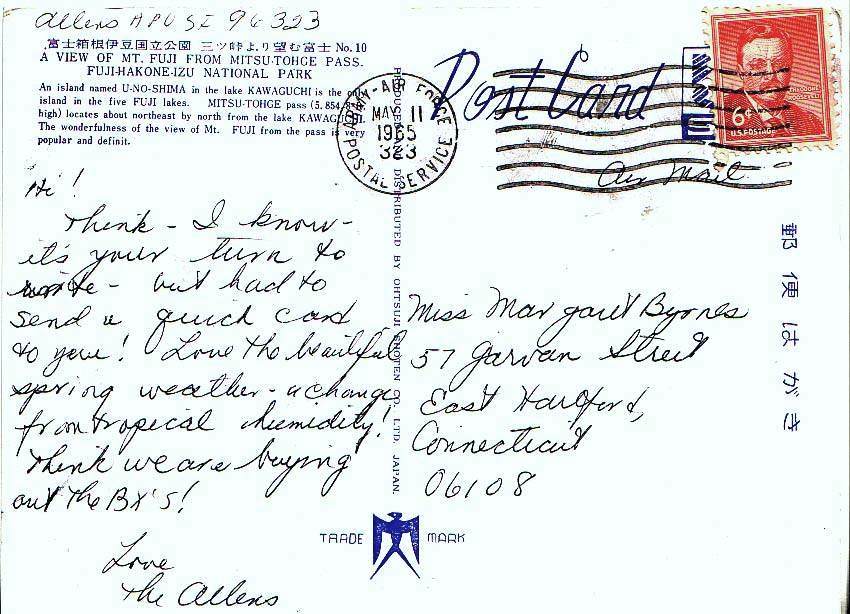 Allens APO SF 96323
富士箱根伊豆国立公園 三ツ峠より望む富士 No.10
A VIEW OF MT. FUJI FROM MITSU-TOHGE PASS.
FUJI-HAKONE-IZU NATIONAL PARK
An island named U-NO-SHIMA in the lake KAWAGUCHI is the only
island in the five FUJI lakes. MITSU-TOHGE pass (5.854
high) locates about northeast by north from the lake KAWAGUCHI.
The wonderfulness of the view of Mt. FUJI from the pass is very
popular and definit.
Post Card
ARMY-AIR FORCE
MAY 11
1965
323
POSTAL SERVICE
THEODORE
ROOSEVELT
6¢
U.S. POSTAGE
Air Mail
Hi!
Think - I know -
it's your turn to
write - but had to
send a quick card
to you! Love the beautiful
spring weather - a change
from tropical humidity!
Think we are buying
out the BX's!
Love
The Allens
PRODUCED AND DISTRIBUTED BY OHTSUJI SHOTEN CO., LTD. JAPAN.
Miss Margaret Byrnes
57 Garvan Street
East Hartford,
Connecticut
06108
郵便はがき
TRADE MARK